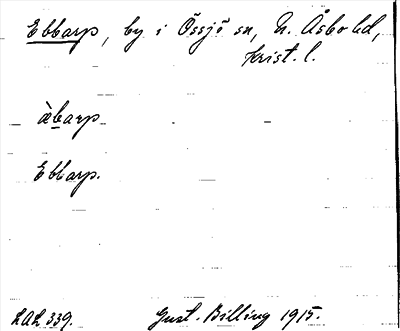 Ebbarp, by i Össjö sn, N. Åsbo hd,
Krist. l.
àbarp
Ebbarp.
LAL 339. Gust. Billing 1915.